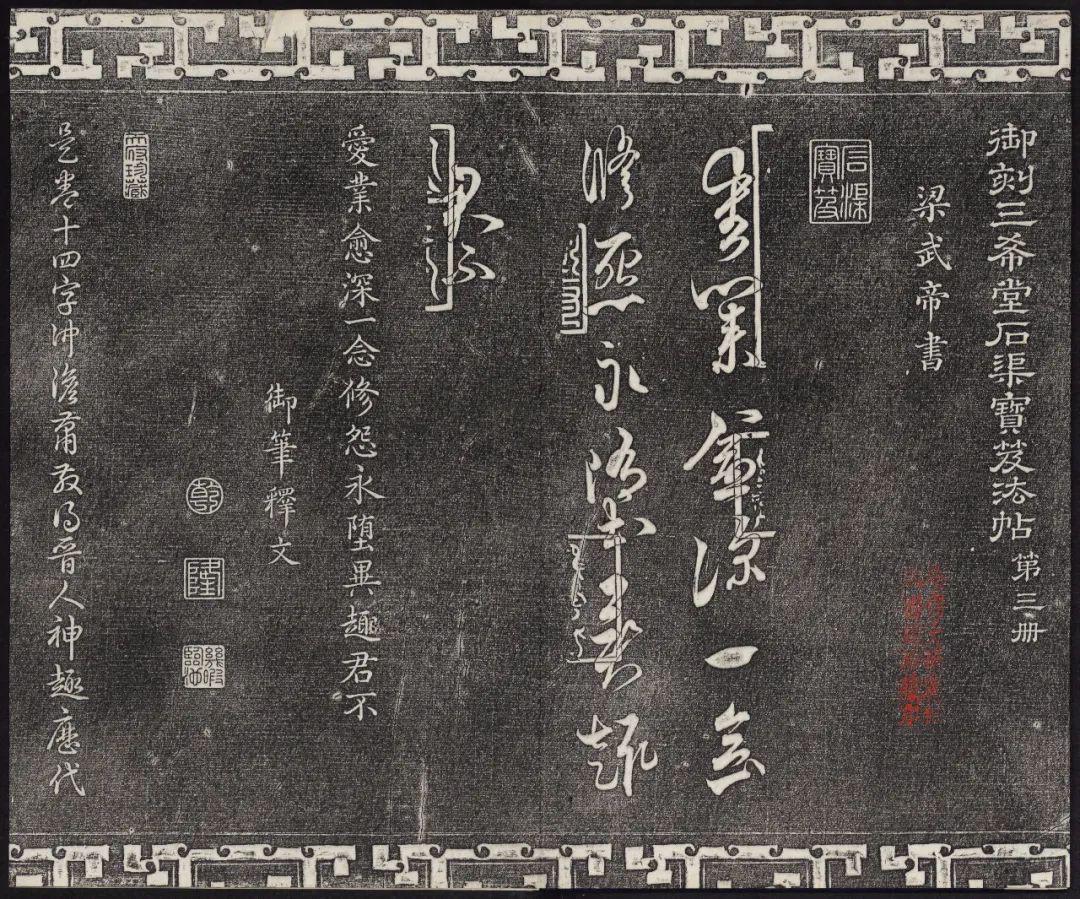 御刻三希堂石渠寶笈法帖第三冊
梁武帝書
石渠寶笈
愛業愈深一念
修怨永堕異趣
君不
愛業愈深一念修怨永堕異趣君不
御筆釋文
乾
隆
幾暇臨池
是卷十四字沖澹蕭散得晋人神趣歷代